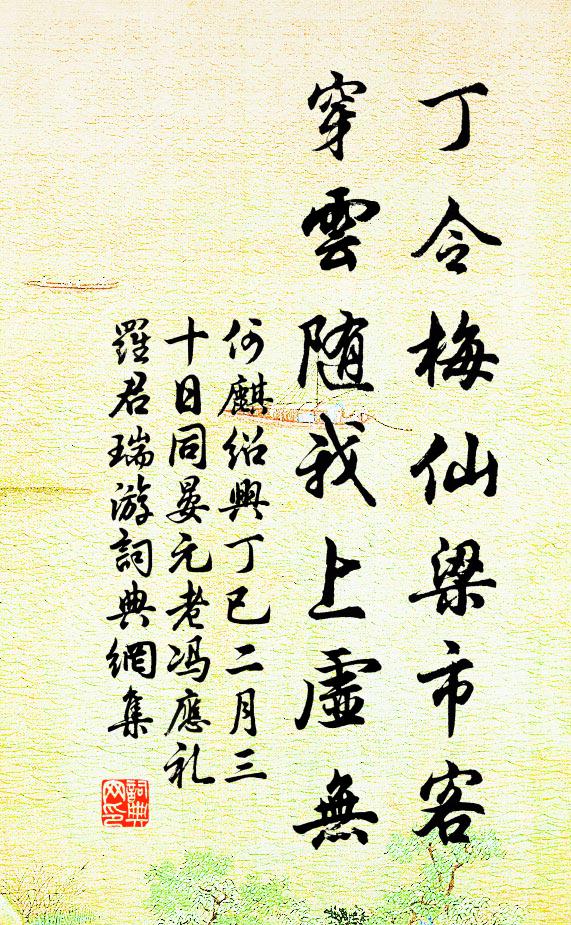 丁令梅仙梁市客
穿雲随我上虛無
何麒紹興丁巳二月三
十日同晏元老冯應礼
羅君瑞游詞典網集
詞典网印